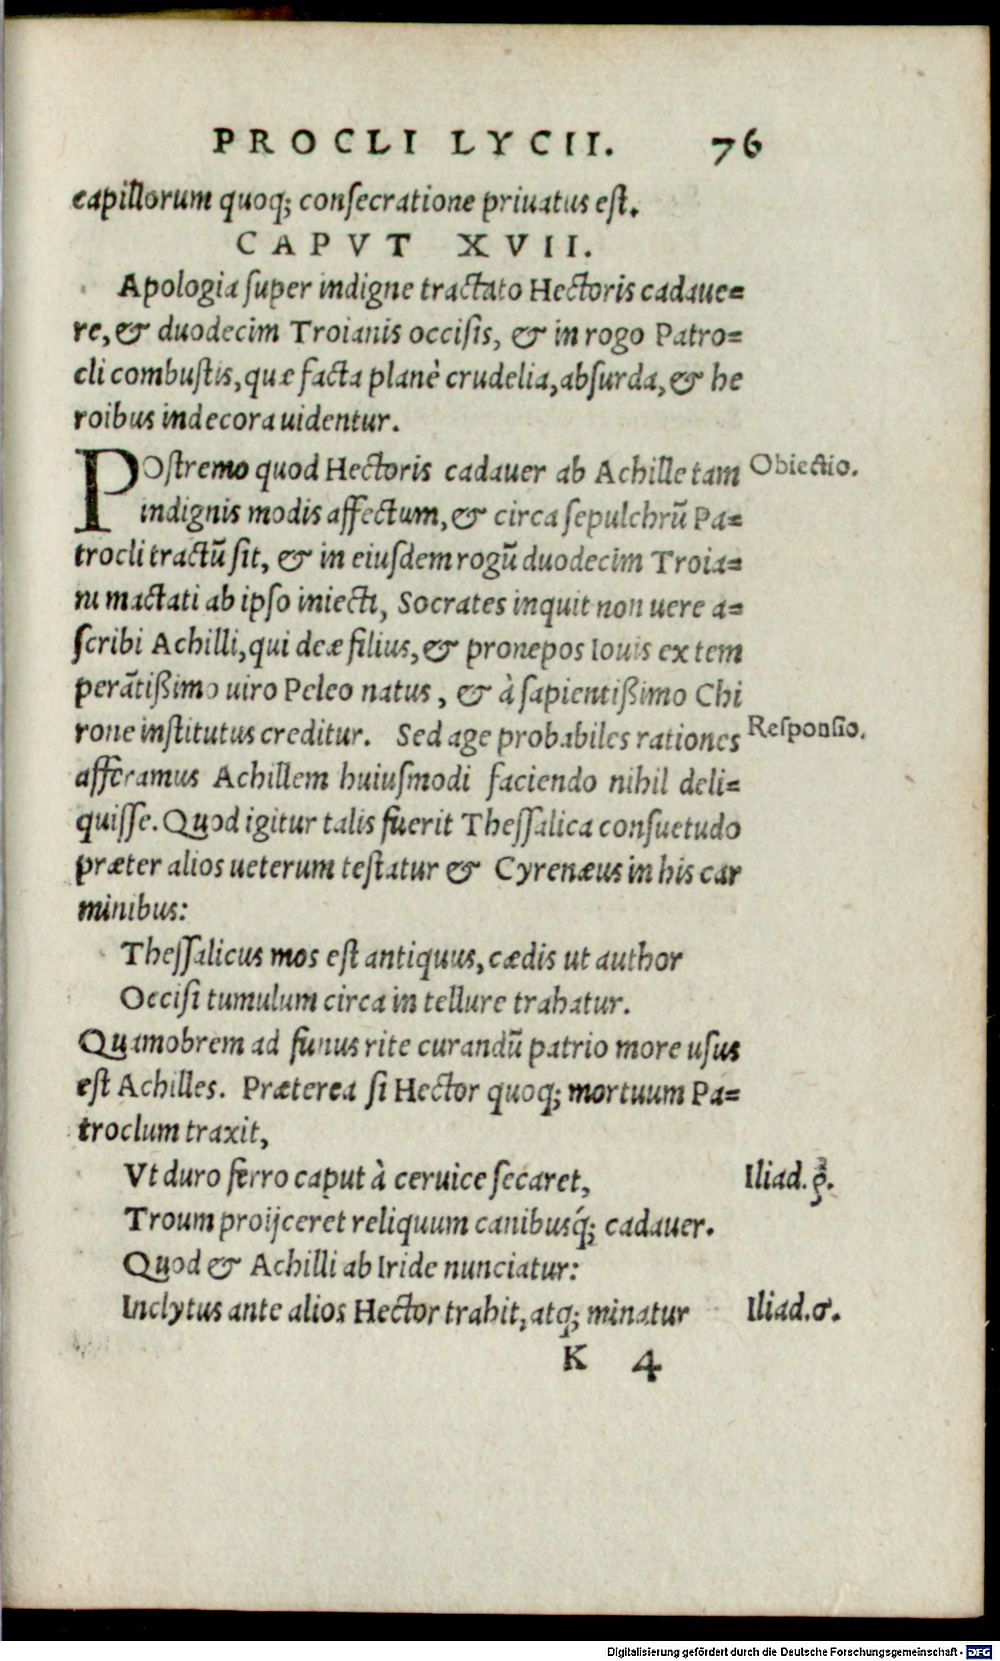 PROCLI LYCII. 76
capillorum quoq; conſecratione priuatus eſt.
CAPVT XVII.
Apologia ſuper indigne tractato Hectoris cadaue=
re, & duodecim Troianis occiſis, & in rogo Patro=
cli combuſtis, quæ facta planè crudelia, abſurda, & he
roibus indecora uidentur.
POſtremo quod Hectoris cadauer ab Achille tam Obiectio.
indignis modis affectum, & circa ſepulchrũ Pa=
trocli tractũ ſit, & in eiuſdem rogũ duodecim Troia=
ni mactati ab ipſo iniecti, Socrates inquit non uere a=
ſcribi Achilli, qui deæ filius, & pronepos Iouis ex tem
perãtißimo uiro Peleo natus, & à ſapientißimo Chi
rone inſtitutus creditur. Sed age probabiles rationes Reſponſio.
afferamus Achillem huiuſmodi faciendo nihil deli=
quiſſe. Quod igitur talis fuerit Theſſalica conſuetudo
præter alios ueterum teſtatur & Cyrenæus in his car
minibus:
Theſſalicus mos eſt antiquus, cædis ut author
Occiſi tumulum circa in tellure trahatur.
Quamobrem ad funus rite curandũ patrio more uſus
eſt Achilles. Præterea ſi Hector quoq; mortuum Pa=
troclum traxit,
Vt duro ferro caput à ceruice ſecaret, Iliad. ρ.
Troum proijceret reliquum canibusq́; cadauer.
Quod & Achilli ab Iride nunciatur:
Inclytus ante alios Hector trahit, atq; minatur Iliad. σ.
K 4
Digitalisierung gefördert durch die Deutsche Forschungsgemeinschaft - DFG